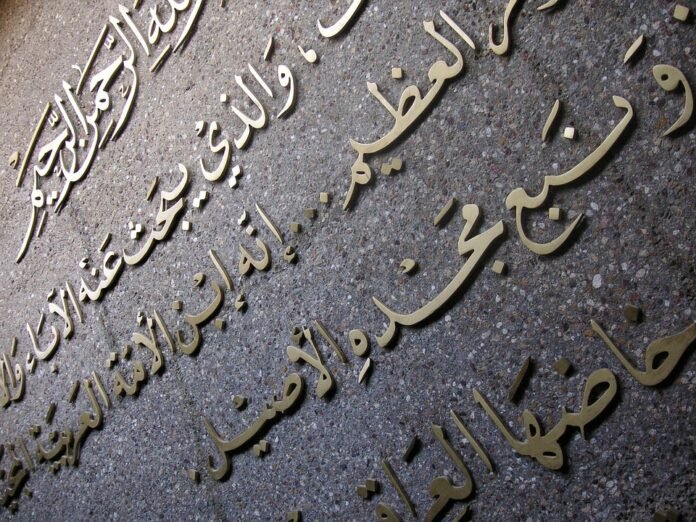 الله الرَّحْمنِ الرَّحِيمْ
، وَالذيْ يبحَث عَنْه الآبَاء
العظِيم ... إنه إبْن الأمَة العَربيَة
نبَع مجْدهِ الأصْيل.
العراق